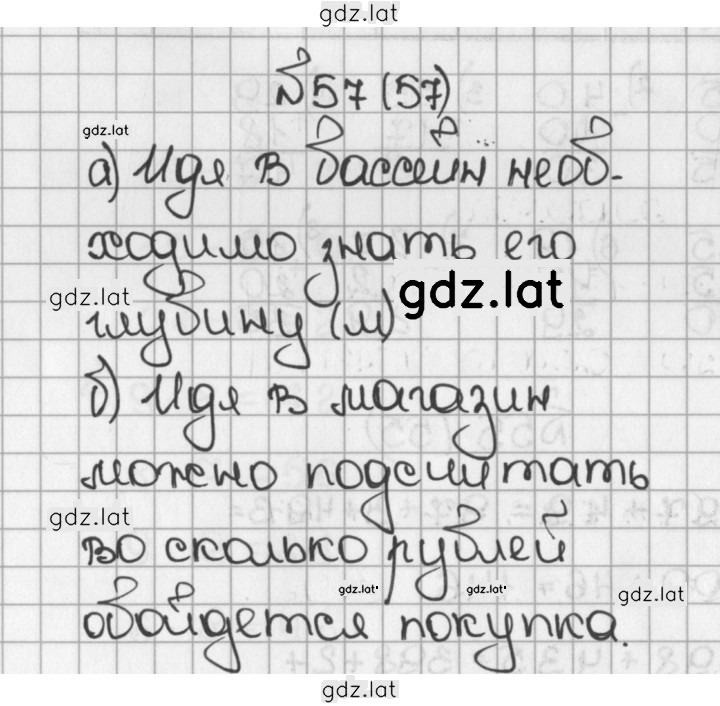 gdz.lat
№57 (57)
gdz.lat
а) Идя в бассейн необ-
ходимо знать его
gdz.lat
gdz.lat
глубину (м)
б) Идя в магазин
можно подсчитать
gdz.lat
во сколько рублей
gdz.lat
gdz.lat
gdz.lat
обойдется покупка.
gdz.lat